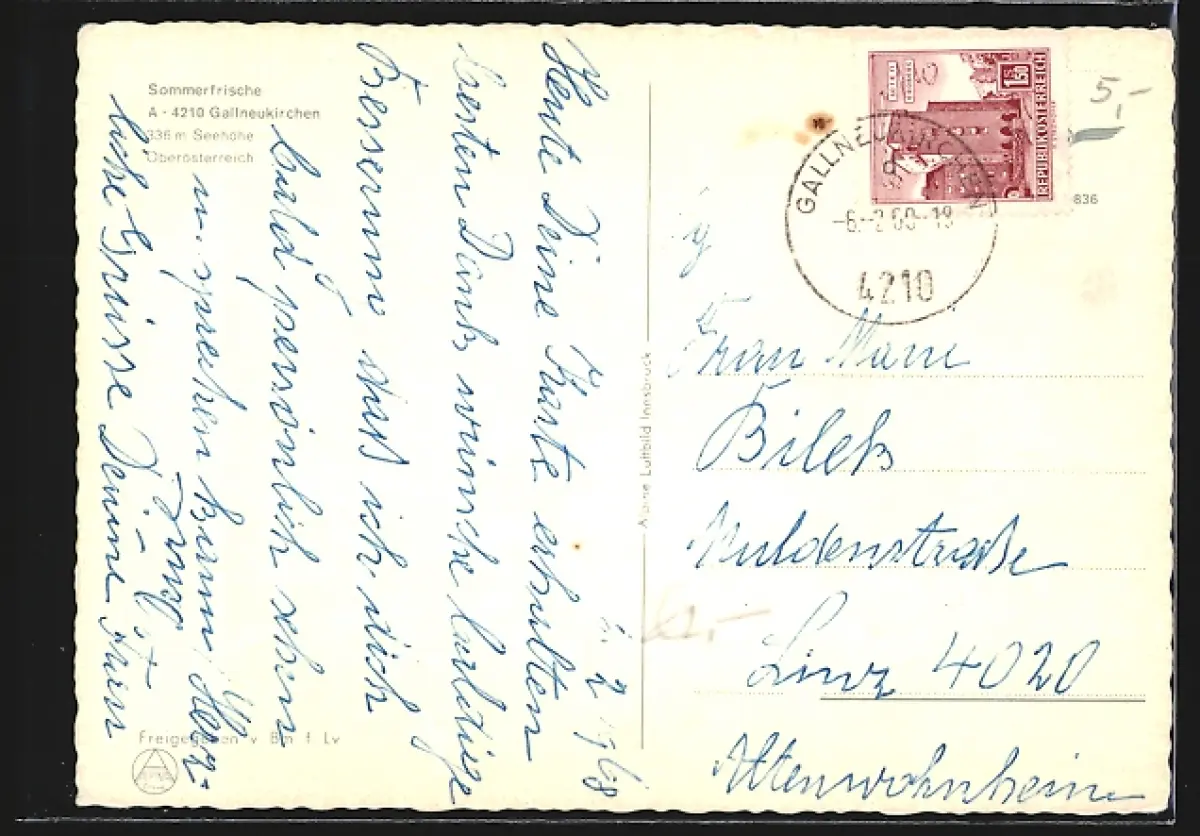 Sommerfrische
A - 4210 Gallneukirchen
336 m Seehöhe
Oberösterreich
5,-
GALLNEUKIRCHEN
-6.-2.68-19
4210
1.50
REPUBLIK ÖSTERREICH
836
6. 2. 1968
Heute Deine Karte erhalten
besten Dank, wünsche baldige
Besserung, daß ich dich
bald persönlich sehen
u. sprechen kann, Herz-
liche Grüsse Deine
Frau
Bilek
Muldenstraße
Linz 4020
Altenwohnheim
Alpine Luftbild Innsbruck
Freigegeben v. Bm f. Lv